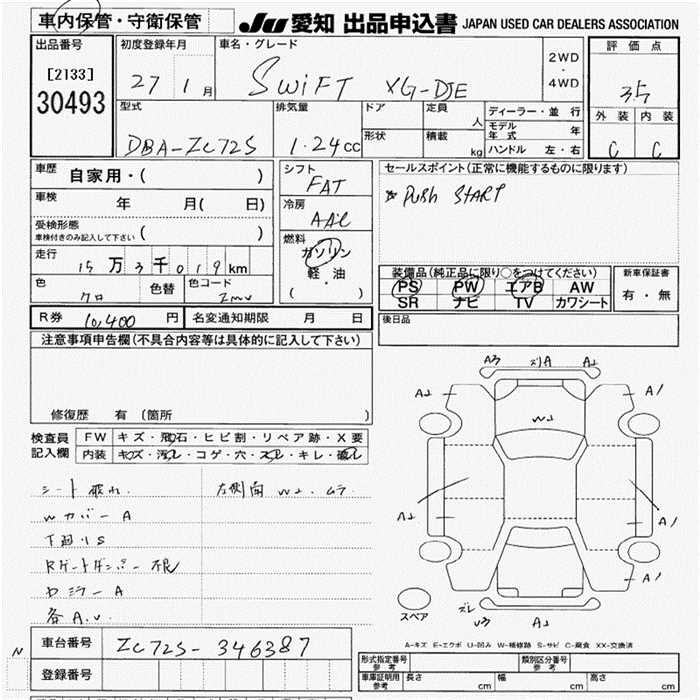 車内保管・守衛保管
JU 愛知 出品申込書 JAPAN USED CAR DEALERS ASSOCIATION
出品番号
[2133]
30493
初度登録年月
27 1 月
車名・グレード
SWiFT XG-DJE
2WD
・
4WD
評価点
3.5
外装 内装
C C
型式
DBA-ZC72S
排気量
1.24 cc
ドア
定員
人
形状
積載
kg
ディーラー・並行
モデル年式 年
ハンドル 左・右
車歴
自家用・( )
車検
年 月( 日)
受検形態
車検付きのみ記入して下さい ( )
走行
15万3千019km
色
クロ
色替
色コード
ZMV
シフト
FAT
冷房
AAC
燃料
ガソリン
・
軽油
・
( )
セールスポイント(正常に機能するものに限ります)
PUSH START
装備品(純正品に限り○をつけてください)
PS PW エアB AW
SR ナビ TV カワシート
新車保証書
有・無
R券 10,400 円
名変通知期限 月 日
後日品
注意事項申告欄(不具合内容等は具体的に記入して下さい)
修復歴 有 (箇所 )
検査員
記入欄
FW キズ・飛石・ヒビ割・リペア跡・X要
内装 キズ・汚れ・コゲ・穴・スレ・キレ・破れ
シート破れ.
左側面 W2. ムラ
Wカバー A
下回りS
Rゲートダンパー不良
カミラー A
各A.U.
A3 ズリA A2
A2 A1
W2
A2 A1
A1
ズレ
U3 A2
スペア
A-キズ E-エクボ U-凹み W-補修跡 S-サビ C-腐食 XX-交換済
N
車台番号 ZC72S-346387
登録番号
形式指定番号
参考
類別区分番号
参考
車庫証明用
参考
長さ cm 幅 cm 高さ cm